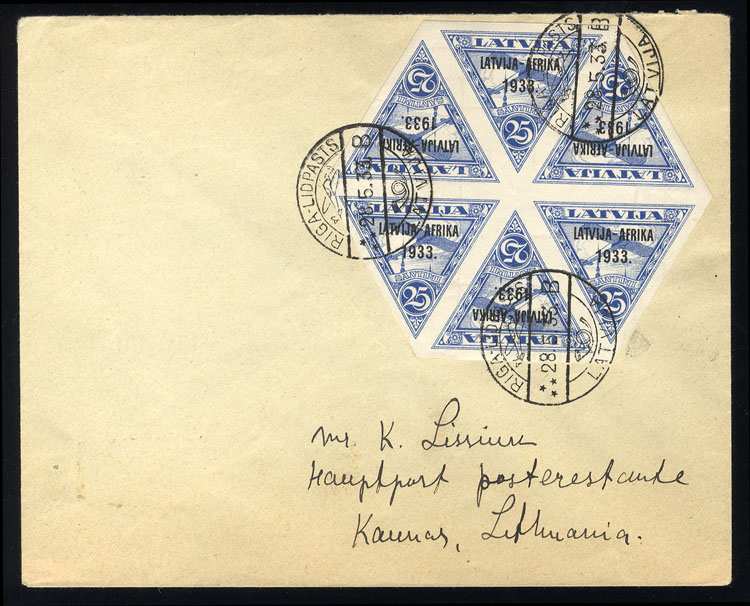 LATVIJA
LATVIJA-AFRIKA
1933.
25
LATVIJA
LATVIJA-AFRIKA
1933.
25
LATVIJA
LATVIJA-AFRIKA
1933.
25
LATVIJA
LATVIJA-AFRIKA
1933.
25
LATVIJA
LATVIJA-AFRIKA
1933.
25
LATVIJA
LATVIJA-AFRIKA
1933.
25
RIGA-LIDPASTS
**28.5.33. B
LATVIJA
**28.5.33. B
LATVIJA
**28. B
LATVIJA
Mr. K.
Hauptpost posterestante
Kaunas, Lithuania.